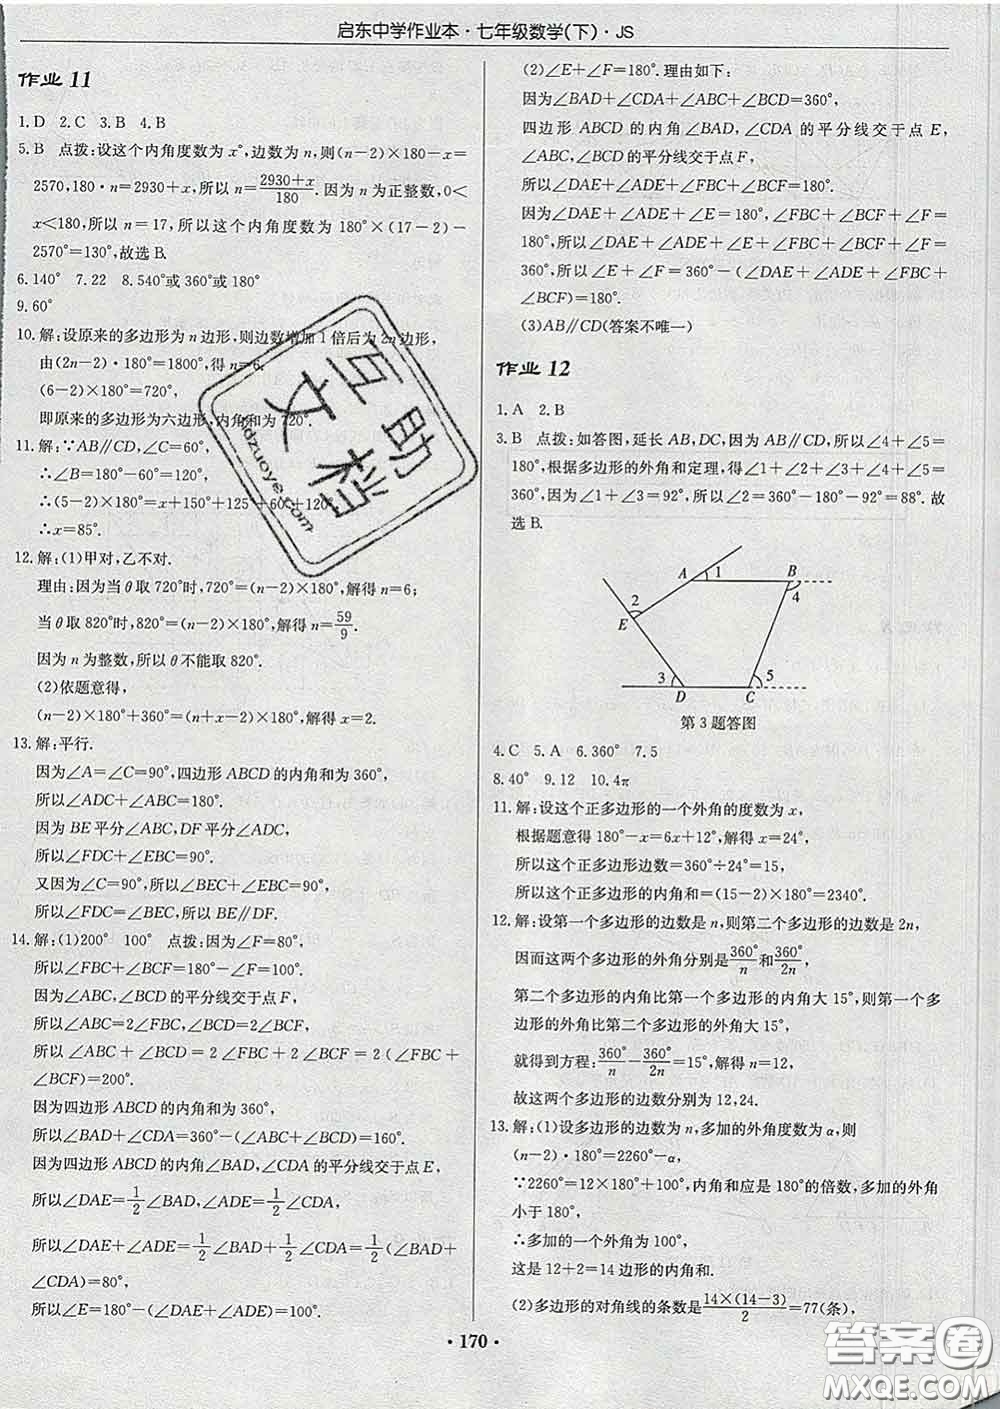 启东中学作业本·七年级数学(下)·JS
作业 11
1.D 2.C 3.B 4.B
5.B 点拨:设这个内角度数为 x°,边数为 n,则(n-2)×180-x=
2570,180·n=2930+x,所以 n=(2930+x)/180.因为 n 为正整数,0<
x<180,所以 n=17,所以这个内角度数为 180°×(17-2)-
2570°=130°,故选B.
6.140° 7.22 8.540°或 360°或 180°
9.60°
10.解:设原来的多边形为 n 边形,则边数增加 1 倍后为 2n 边形,
由(2n-2)·180°=1800°,得 n=6.
(6-2)×180°=720°,
即原来的多边形为六边形,内角和为 720°.
11.解:∵AB∥CD,∠C=60°,
∴∠B=180°-60°=120°,
∴(5-2)×180°=x+150°+125°+60°+120°,
∴x=85°.
12.解:(1)甲对,乙不对.
理由:因为当 θ 取 720°时,720°=(n-2)×180°,解得 n=6;
当 θ 取 820°时,820°=(n-2)×180°,解得 n=59/9.
因为 n 为整数,所以 θ 不能取 820°.
(2)依题意得,
(n-2)×180°+360°=(n+x-2)×180°,解得 x=2.
13.解:平行.
因为∠A=∠C=90°,四边形 ABCD 的内角和为 360°,
所以∠ADC+∠ABC=180°.
因为 BE 平分∠ABC,DF 平分∠ADC,
所以∠FDC+∠EBC=90°.
又因为∠C=90°,所以∠BEC+∠EBC=90°,
所以∠FDC=∠BEC,所以 BE∥DF.
14.解:(1)200° 100° 点拨:因为∠F=80°,
所以∠FBC+∠BCF=180°-∠F=100°.
因为∠ABC,∠BCD 的平分线交于点 F,
所以∠ABC=2∠FBC,∠BCD=2∠BCF,
所以∠ABC+∠BCD=2∠FBC+2∠BCF=2(∠FBC+
∠BCF)=200°.
因为四边形 ABCD 的内角和为 360°,
所以∠BAD+∠CDA=360°-(∠ABC+∠BCD)=160°.
因为四边形 ABCD 的内角∠BAD,∠CDA 的平分线交于点 E,
所以∠DAE=1/2∠BAD,∠ADE=1/2∠CDA,
所以∠DAE+∠ADE=1/2∠BAD+1/2∠CDA=1/2(∠BAD+
∠CDA)=80°,
所以∠E=180°-(∠DAE+∠ADE)=100°.
(2)∠E+∠F=180°.理由如下:
因为∠BAD+∠CDA+∠ABC+∠BCD=360°,
四边形 ABCD 的内角∠BAD,∠CDA 的平分线交于点 E,
∠ABC,∠BCD 的平分线交于点 F,
所以∠DAE+∠ADE+∠FBC+∠BCF=180°.
因为∠DAE+∠ADE+∠E=180°,∠FBC+∠BCF+∠F=
180°,所以∠DAE+∠ADE+∠E+∠FBC+∠BCF+∠F=
360°,所以∠E+∠F=360°-(∠DAE+∠ADE+∠FBC+
∠BCF)=180°.
(3)AB∥CD(答案不唯一)
作业 12
1.A 2.B
3.B 点拨:如答图,延长 AB,DC,因为 AB∥CD,所以∠4+∠5=
180°,根据多边形的外角和定理,得∠1+∠2+∠3+∠4+∠5=
360°,因为∠1+∠3=92°,所以∠2=360°-180°-92°=88°.故
选 B.
A 1 B
4
2
E
3 5
D C
第 3 题答图
4.C 5.A 6.360° 7.5
8.40° 9.12 10.4π
11.解:设这个正多边形的一个外角的度数为 x,
根据题意得 180°-x=6x+12°,解得 x=24°,
所以这个正多边形边数=360°÷24°=15,
所以这个正多边形的内角和=(15-2)×180°=2340°.
12.解:设第一个多边形的边数是 n,则第二个多边形的边数是 2n,
因而这两个多边形的外角分别是360°/n和360°/2n,
第二个多边形的内角比第一个多边形的内角大 15°,则第一个多
边形的外角比第二个多边形的外角大 15°,
就得到方程:360°/n-360°/2n=15°,解得 n=12,
故这两个多边形的边数分别为 12,24.
13.解:(1)设多边形的边数为 n,多加的外角度数为 α,则
(n-2)·180°=2260°-α,
∵2260°=12×180°+100°,内角和应是 180°的倍数,多加的外角
小于 180°,
∴多加的一个外角为 100°,
这是 12+2=14 边形的内角和.
(2)多边形的对角线的条数是14×(14-3)/2=77(条),
·170·
互助文档
kdzuoye.com
答案圈
MXQE.COM